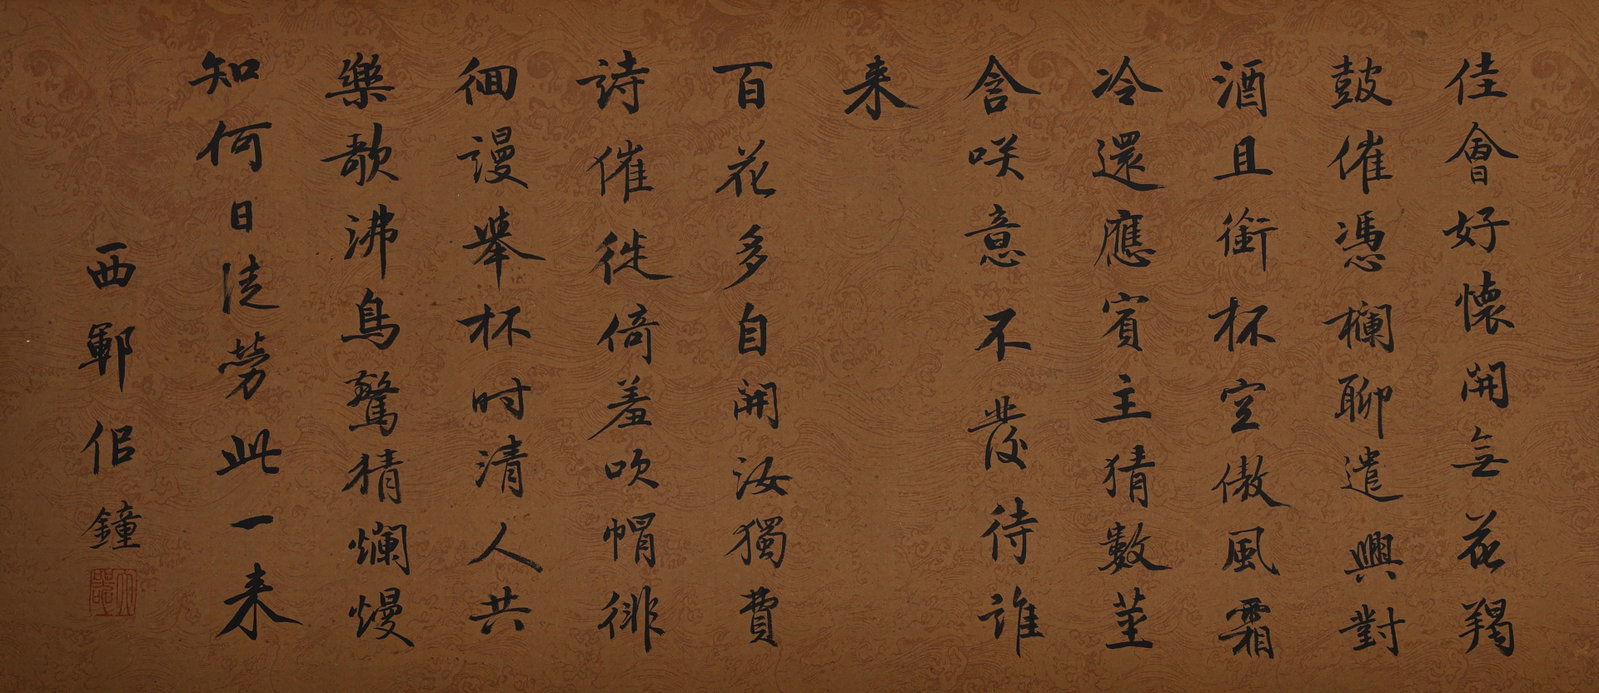 佳會好懷開無花羯
鼓催憑欄聊遣興對
酒且銜杯空傲風霜
冷還應賓主猜數莖
含咲意不發待誰
来
百花多自開汝獨費
詩催徙倚羞吹帽徘
徊謾舉杯时清人共
樂歌沸鳥驚猜爛熳
知何日徒勞此一来
西鄆佀鐘